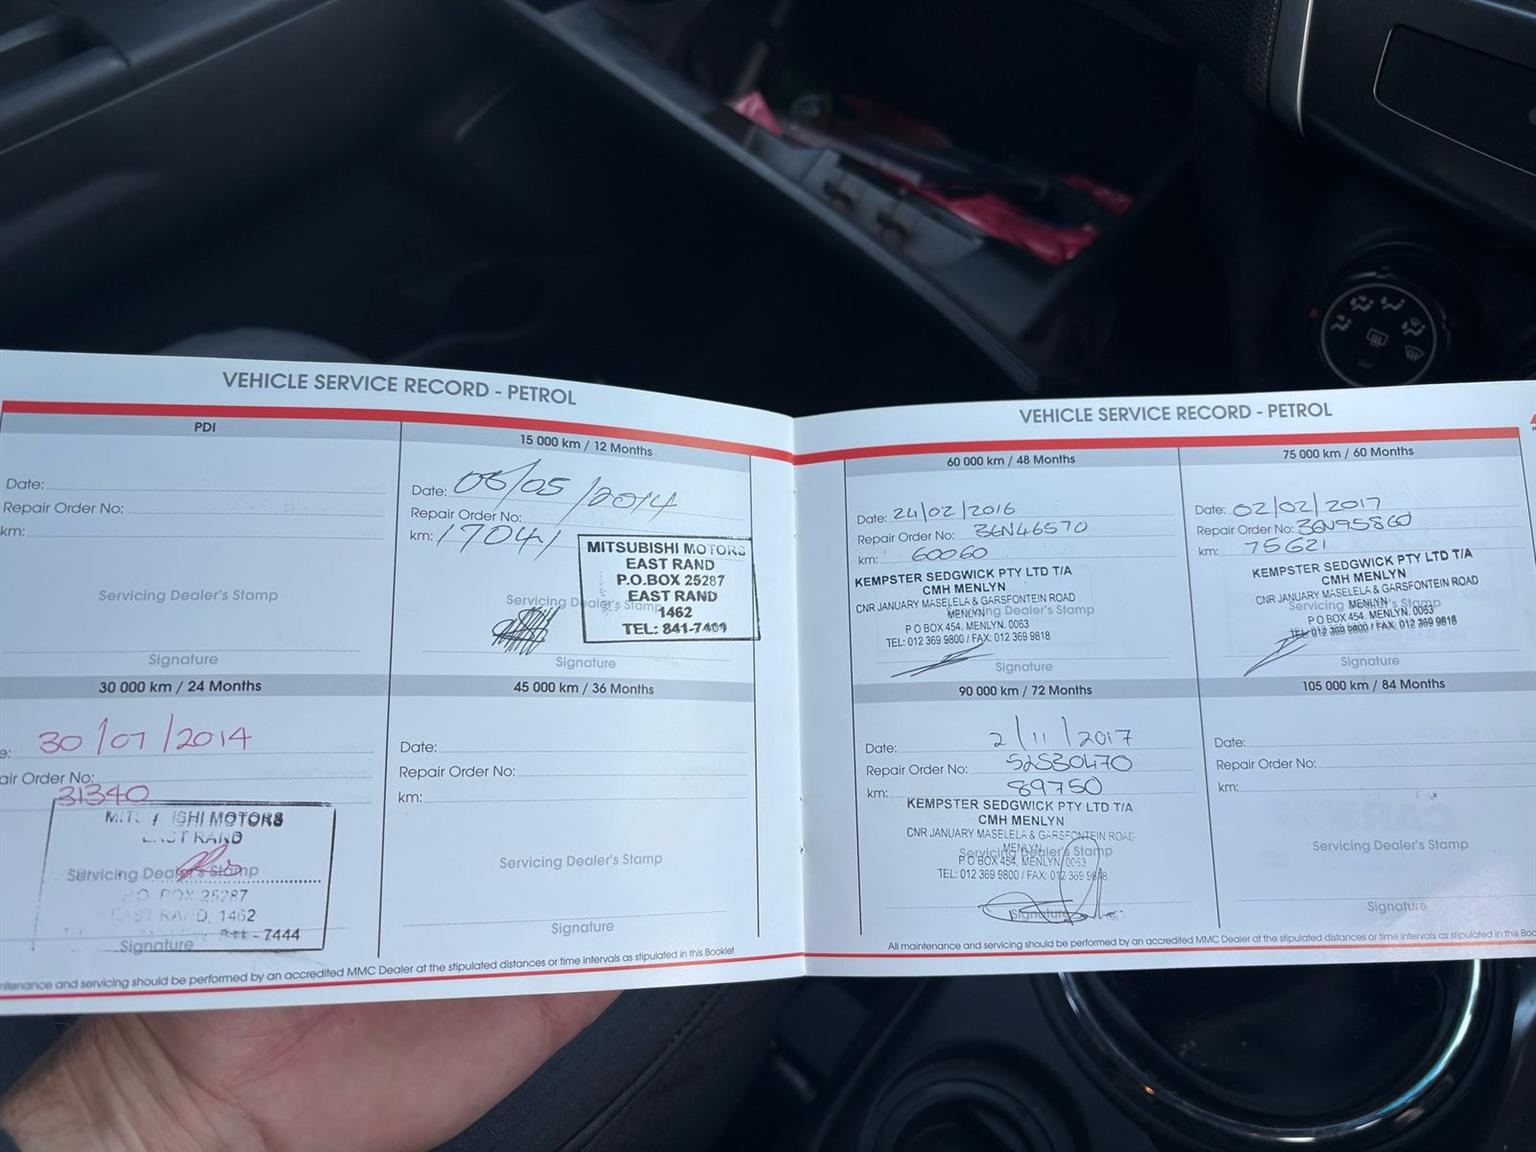 VEHICLE SERVICE RECORD - PETROL
PDI
Date:
Repair Order No:
km:
Servicing Dealer's Stamp
Signature
15 000 km / 12 Months
Date: 06/05/2014
Repair Order No:
km: 17041
MITSUBISHI MOTORS
EAST RAND
P.O.BOX 25287
EAST RAND
1462
TEL: 841-7401
Servicing Dealer's Stamp
Signature
30 000 km / 24 Months
e: 30/07/2014
air Order No:
31340
MITSUBISHI MOTORS
EAST RAND
Servicing Dealer's Stamp
P.O. BOX 25287
EAST RAND, 1462
841 - 7444
Signature
45 000 km / 36 Months
Date:
Repair Order No:
km:
Servicing Dealer's Stamp
Signature
ntenance and servicing should be performed by an accredited MMC Dealer at the stipulated distances or time intervals as stipulated in this Booklet
VEHICLE SERVICE RECORD - PETROL
60 000 km / 48 Months
Date: 24/02/2016
Repair Order No: 36N46570
km: 60060
KEMPSTER SEDGWICK PTY LTD T/A
CMH MENLYN
CNR JANUARY MASELELA & GARSFONTEIN ROAD
MENLYN
Servicing Dealer's Stamp
P O BOX 454, MENLYN, 0063
TEL: 012 369 9800 / FAX: 012 369 9818
Signature
75 000 km / 60 Months
Date: 02/02/2017
Repair Order No: 36N95860
km: 75621
KEMPSTER SEDGWICK PTY LTD T/A
CMH MENLYN
CNR JANUARY MASELELA & GARSFONTEIN ROAD
MENLYN
Servicing Dealer's Stamp
P O BOX 454, MENLYN, 0063
TEL: 012 369 9800 / FAX: 012 369 9818
Signature
90 000 km / 72 Months
Date: 2/11/2017
Repair Order No: 52S30470
km: 89750
KEMPSTER SEDGWICK PTY LTD T/A
CMH MENLYN
CNR JANUARY MASELELA & GARSFONTEIN ROAD
MENLYN
Servicing Dealer's Stamp
P O BOX 454, MENLYN, 0063
TEL: 012 369 9800 / FAX: 012 369 9818
Signature
105 000 km / 84 Months
Date:
Repair Order No:
km:
Servicing Dealer's Stamp
Signature
All maintenance and servicing should be performed by an accredited MMC Dealer at the stipulated distances or time intervals as stipulated in this Boo